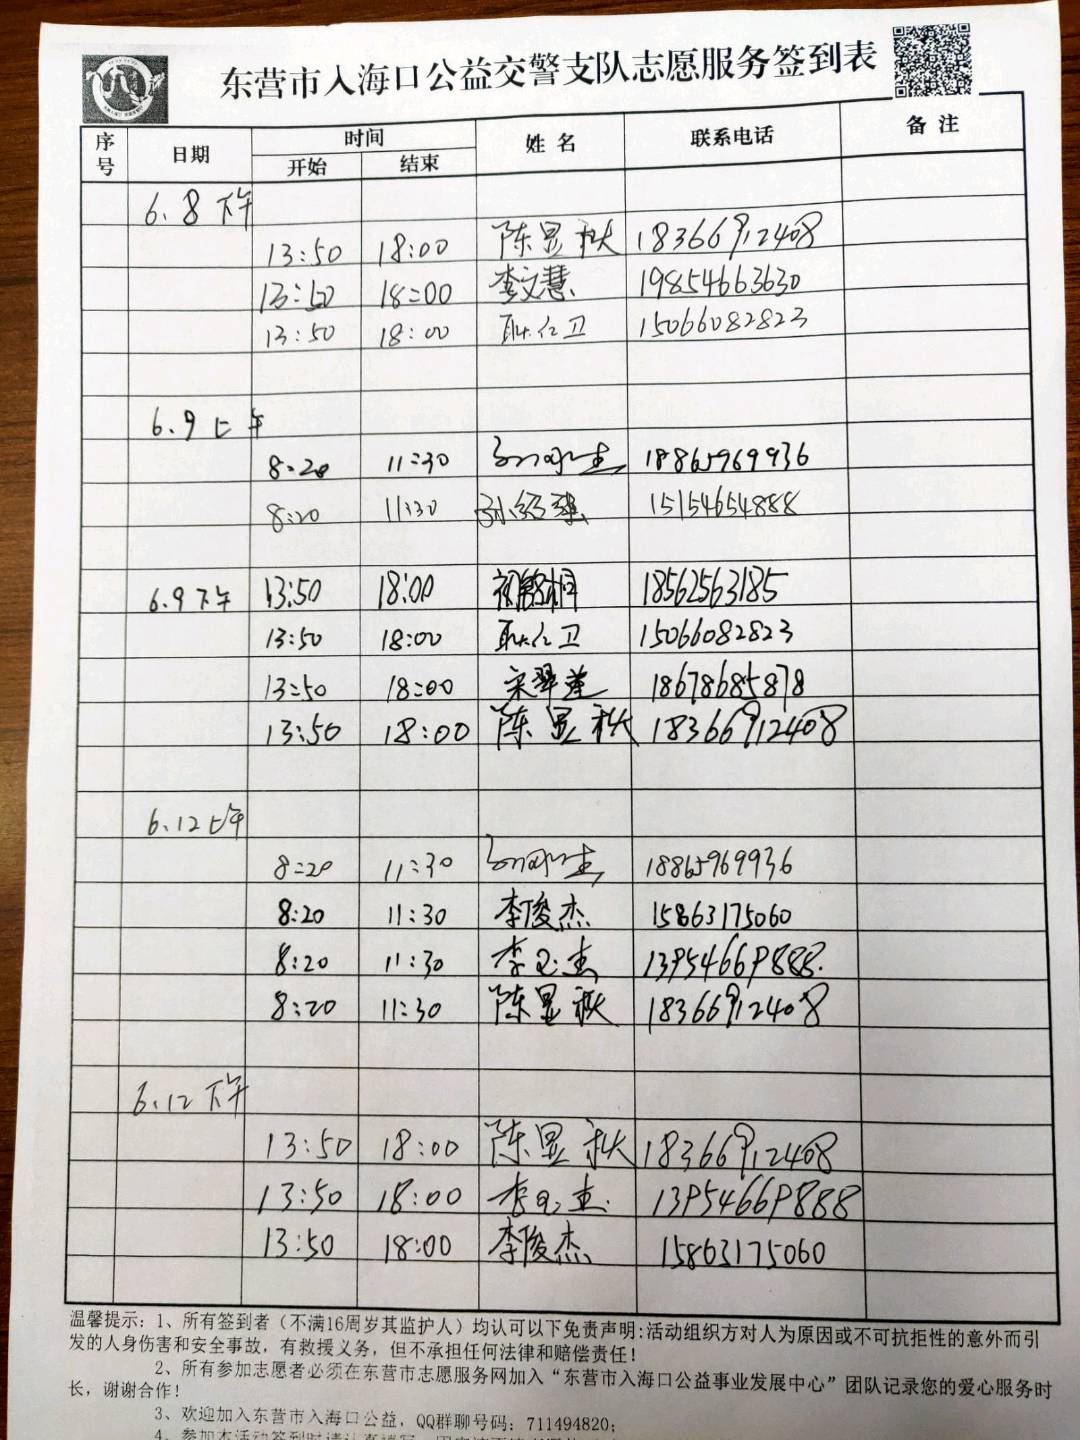 东营市入海口公益交警支队志愿服务签到表
序号 日期 时间 姓名 联系电话 备注
开始 结束
6.8下午
13:50 18:00 陈显秋 18366912408
13:50 18:00 李文慧 19854663630
13:50 18:00 耿仁卫 15066082823
6.9上午
8:20 11:30 18865969936
8:20 11:30 15154654888
6.9下午 13:50 18:00 18562563185
13:50 18:00 耿仁卫 15066082823
13:50 18:00 宋翠莲 18678685878
13:50 18:00 陈显秋 18366912408
6.12上午
8:20 11:30 18865969936
8:20 11:30 李俊杰 15863175060
8:20 11:30 李玉杰 13954669888.
8:20 11:30 陈显秋 18366912408
6.12下午
13:50 18:00 陈显秋 18366912408
13:50 18:00 李玉杰 13954669888
13:50 18:00 李俊杰 15863175060
温馨提示：1、所有签到者（不满16周岁其监护人）均认可以下免责声明:活动组织方对人为原因或不可抗拒性的意外而引
发的人身伤害和安全事故，有救援义务，但不承担任何法律和赔偿责任！
2、所有参加志愿者必须在东营市志愿服务网加入“东营市入海口公益事业发展中心”团队记录您的爱心服务时
长，谢谢合作！
3、欢迎加入东营市入海口公益，QQ群聊号码：711494820；